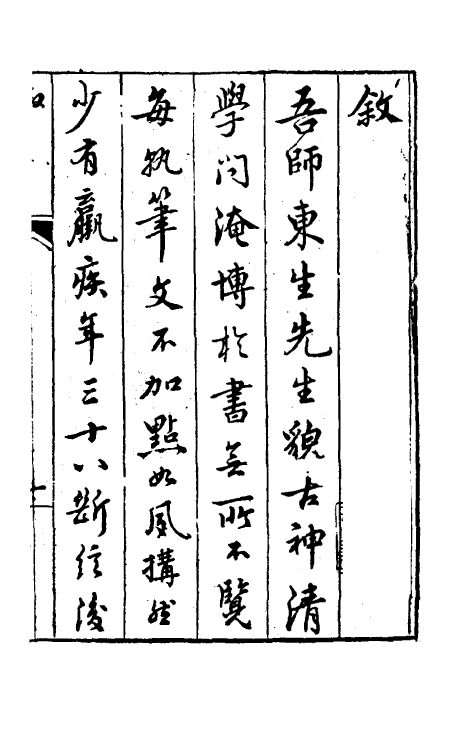 敘
吾師東生先生貌古神清
學問淹博於書無所不覽
每執筆文不加點如風搆然
少有羸疾年三十八斷絃後